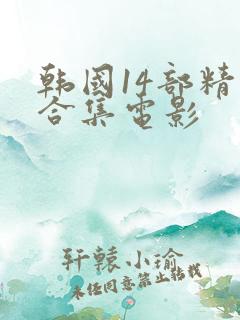 韩国14部精
合集电影
轩辕小瑜
未经同意禁止转载